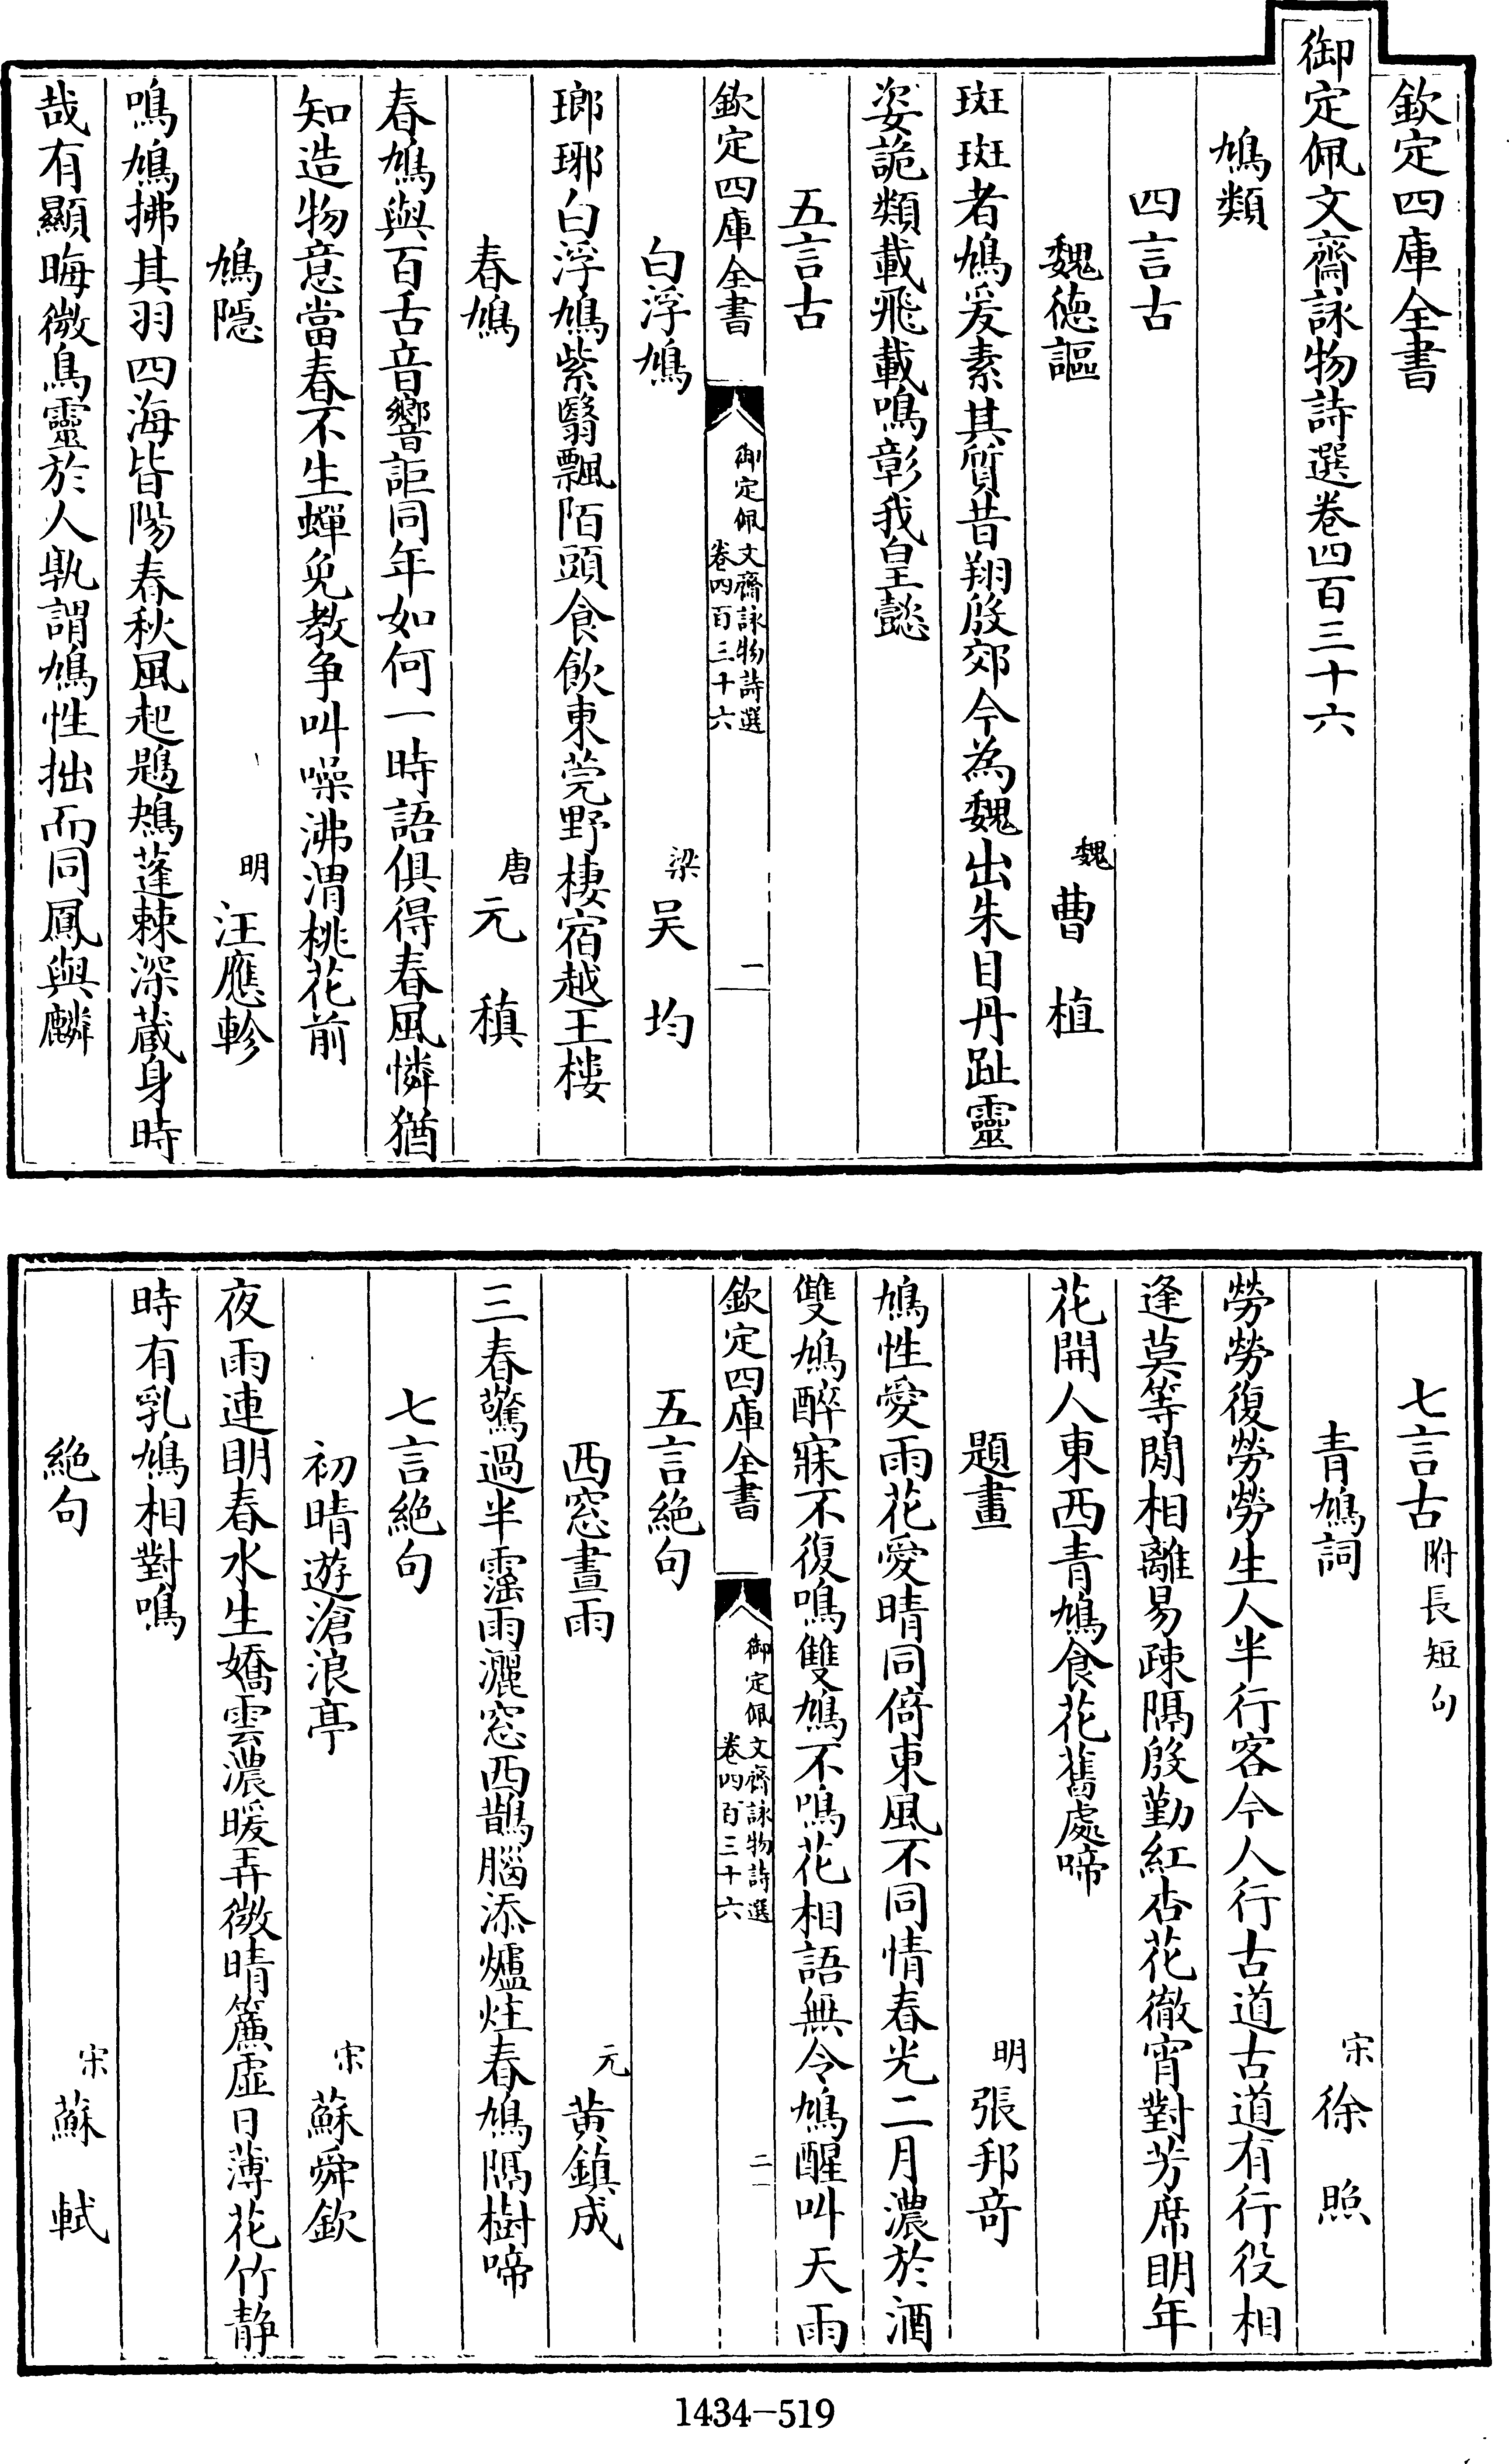 欽定四庫全書
御定佩文齋詠物詩選卷四百三十六
鳩類
四言古
魏德謳 魏 曹植
斑斑者鳩爰素其質昔翔殷郊今為魏出朱目丹趾靈
姿詭類載飛載鳴彰我皇懿
五言古
欽定四庫全書 御定佩文齋詠物詩選 卷四百三十六 一
白浮鳩 梁 吴均
瑯琊白浮鳩紫翳飄陌頭食飲東莞野棲宿越王樓
春鳩 唐 元稹
春鳩與百舌音響詎同年如何一時語俱得春風憐猶
知造物意當春不生蟬免教争叫噪沸渭桃花前
鳩隠 明 汪應軫
鳴鳩拂其羽四海皆陽春秋風起鶗鴂蓬棘深藏身時
哉有顯晦微鳥靈於人孰謂鳩性拙而同鳳與麟
七言古附長短句
青鳩詞 宋 徐照
勞勞復勞勞生人半行客今人行古道古道有行役相
逢莫等閒相離易疎隔殷勤紅杏花徹宵對芳席明年
花開人東西青鳩食花舊處啼
題畫 明 張邦奇
鳩性愛雨花愛晴同倚東風不同情春光二月濃於酒
雙鳩醉寐不復鳴雙鳩不鳴花相語無令鳩醒叫天雨
欽定四庫全書 御定佩文齋詠物詩選 卷四百三十六 二
五言絶句
西窓晝雨 元 黄鎮成
三春驚過半靈雨灑窓西鵲腦添爐炷春鳩隔樹啼
七言絶句
初晴遊滄浪亭 宋 蘇舜欽
夜雨連明春水生嬌雲濃暖弄微晴簾虛日薄花竹静
時有乳鳩相對鳴
絶句 宋 蘇軾
1434-519